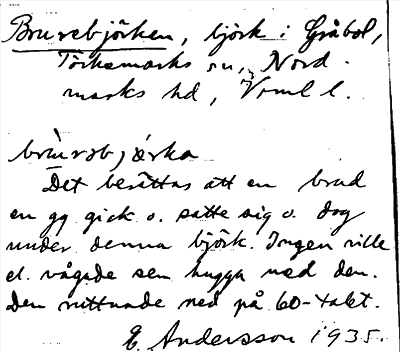 Brurebjörken, björk i Gråbol,
Törksmarks sn, Nord-
marks hd, Vrml l.
brùrəbjærka
Det berättas att en brud
en gg gick o. satte sig o. dog
under denna björk. Ingen ville
el. vågade sen hugga ned den.
Den ruttnade ned på 60-talet.
E. Andersson 1935.